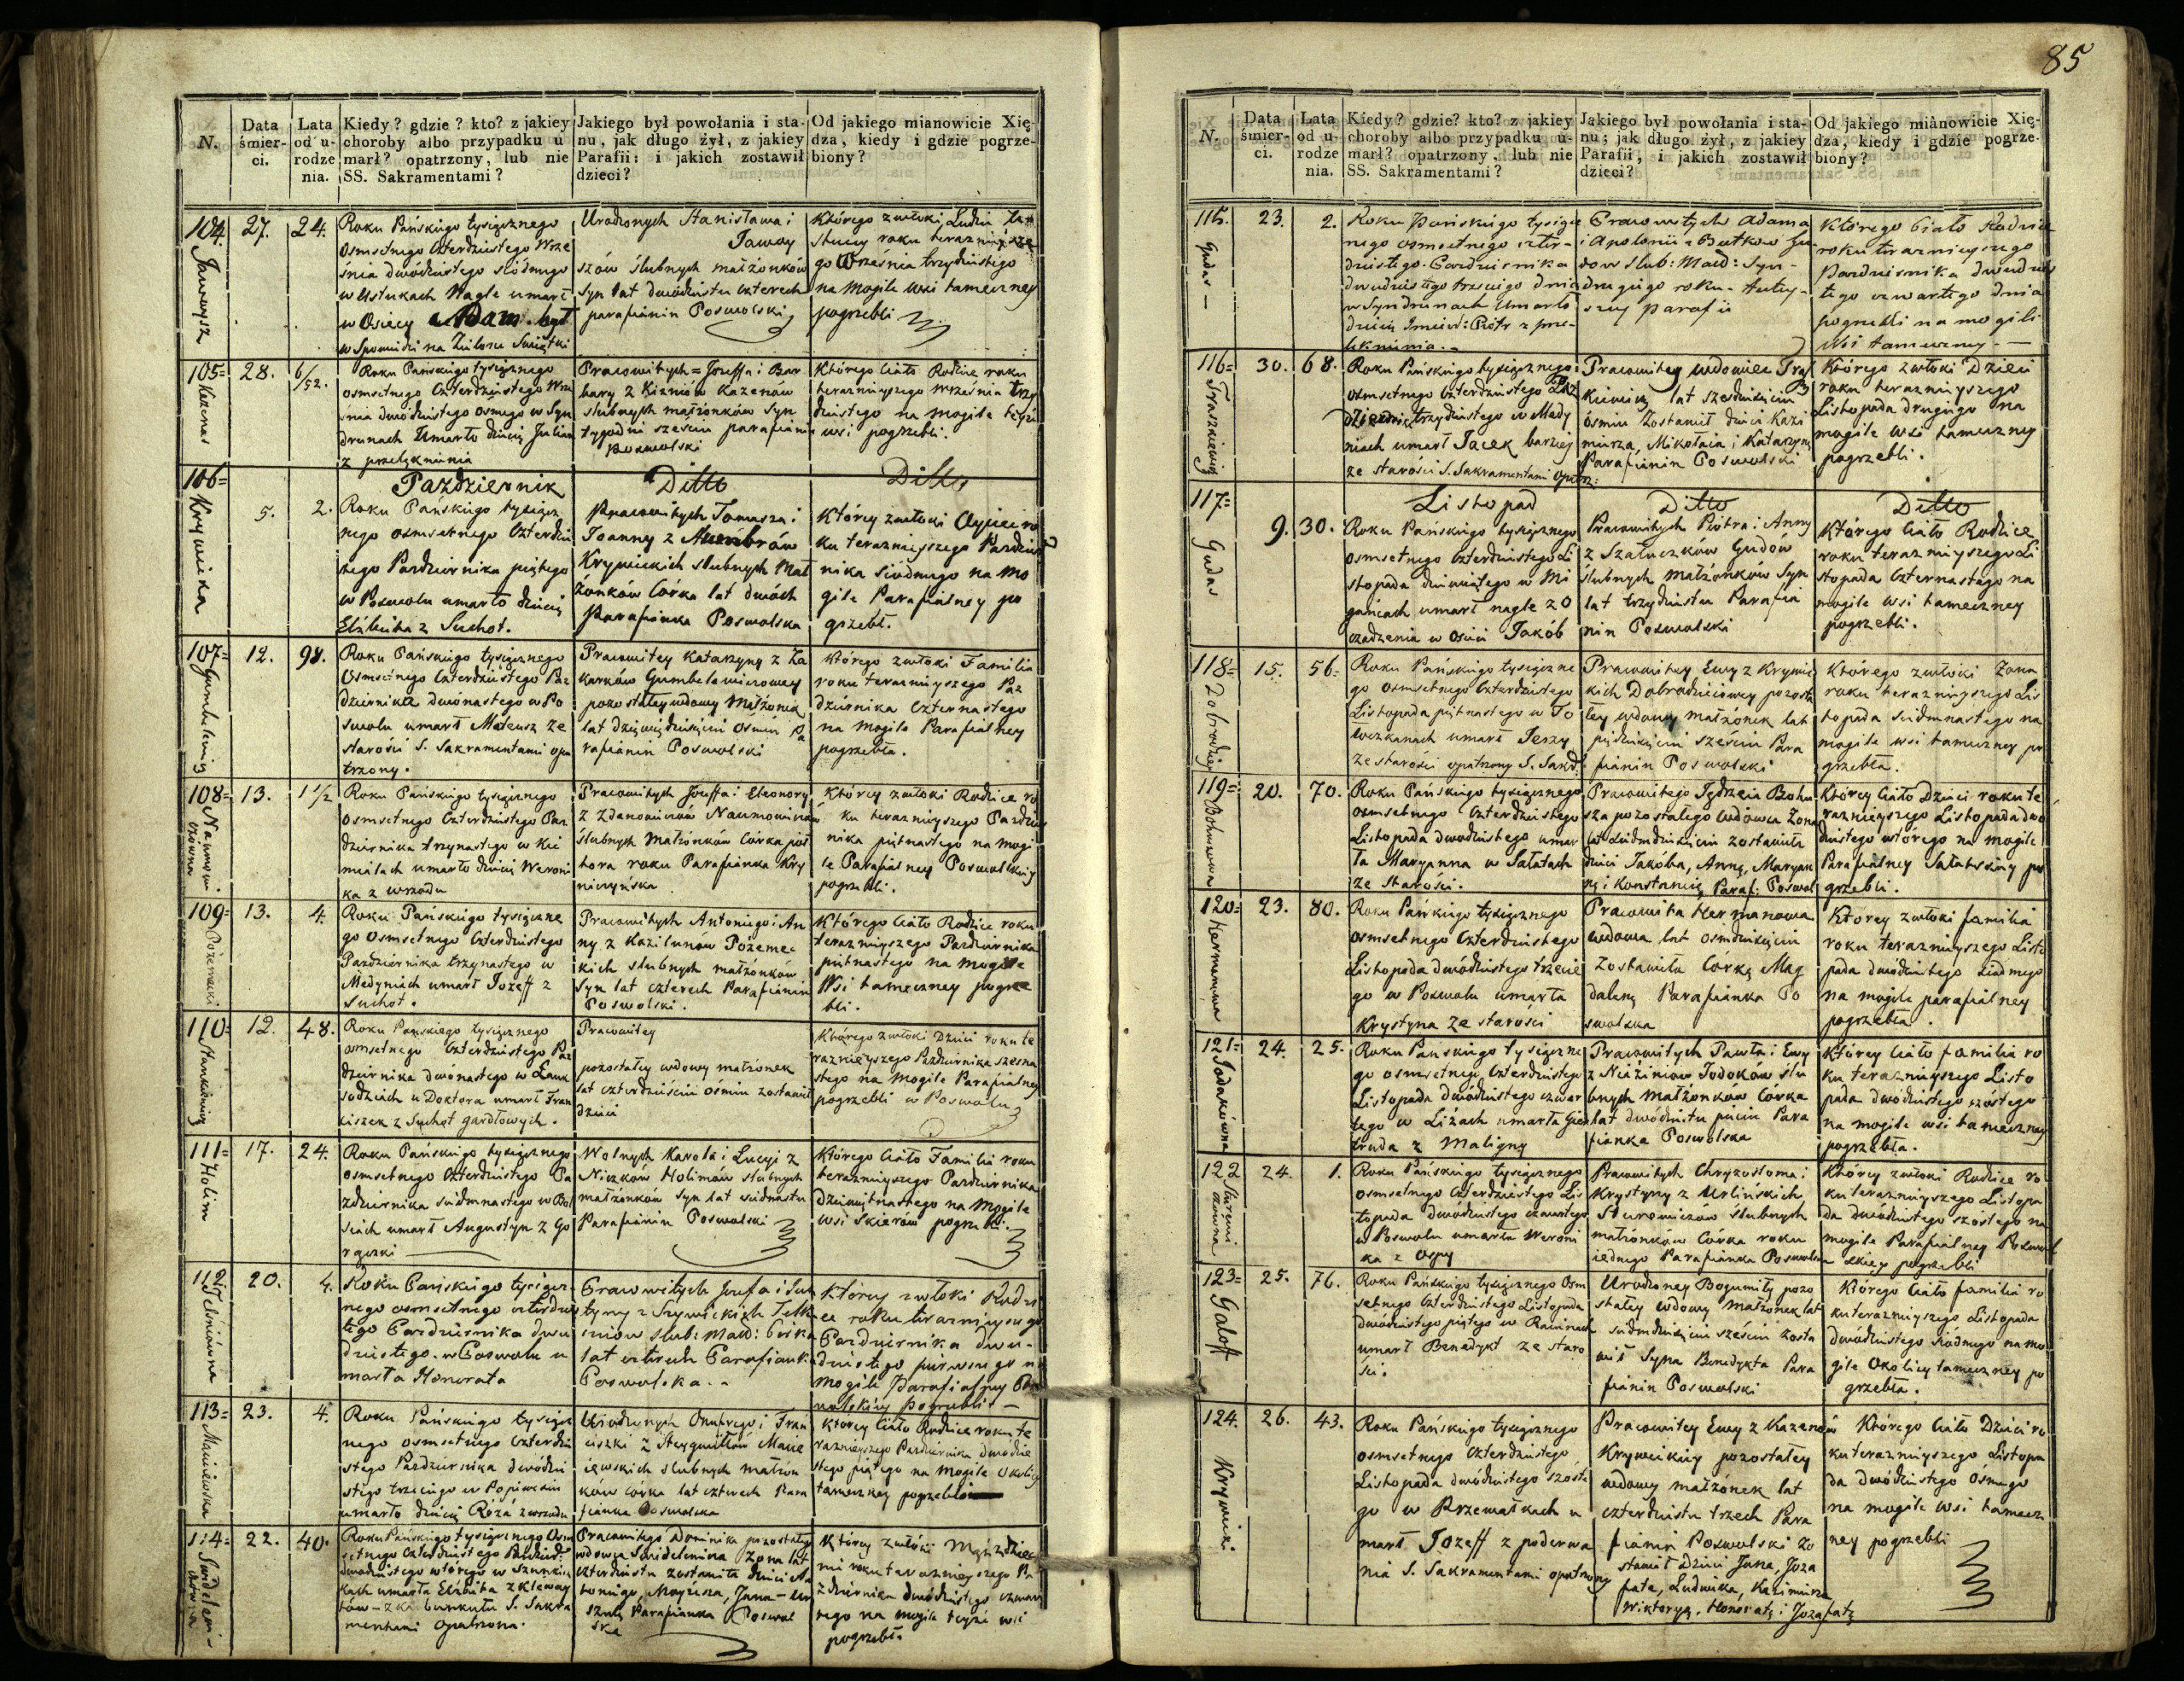 85
N.
Data śmier- ci.
Lata od u- rodze nia.
Kiedy? gdzie? kto? z jakiey
choroby albo przypadku u
marł? opatrzony, lub nie
SS. Sakramentami?
Jakiego był powołania i sta-
nu, jak długo żył, z jakiey
Parafii: i jakich zostawił
dzieci?
Od jakiego mianowicie Xię-
dza, kiedy i gdzie pogrze-
biony?
104. 27. 24.
Roku Pańskiego tysiącznego
osmsetnego czterdziestego Wrze
śnia dwódziestego siódmego
w Ustukach Nagle umarł
Adam
Urodzonych Stanisława i
szów ślubnych małżonków
Syn lat dwódziestu czterech
parafianin Poswolski
Którego zwłoki Ludzie
roku teraznieysze
go Września trzydziestego
na Mogile wsi tameczney
pogrzebli
105= 28. 6/52.
Roku Pańskiego tysiącznego
osmsetnego czterdziestego Wrze
śnia dwódziestego osmego w Syn
drunach Umarło dziecię Julian
z przelęknienia
Pracowitych = Jozeffa i Bar
bary z Kiżniów Kazenów
slubnych małżonków Syn
tygodni szesciu parafianin
Poswolski
Którego ciało Rodzice roku
teraznieyszego Września trzy
dziestego na mogile teyże
wsi pogrzebli.
106=
Krywicka
Pazdziernik
Ditto
Ditto
5. 2.
Roku Pańskiego tysiącz
nego osmsetnego Czterdzie
stego Pazdziernika piątego
w Poswolu umarło dziecię
Elżbieta z Suchot.
Pracowitych Tomasza i
Joanny z
Krywickich slubnych Mał
żonków Córka lat dwóch
Parafianka Poswolska
Którey zwłoki Oyciec ro
ku teraznieyszego Pazdzier
nika siódmego na Mo
gile Parafialney po
grzebł.
107= 12. 98.
Roku Pańskiego tysiącznego
Osmsetnego Czterdziestego Paz
dziernika dwónastego w Po
swolu umarł Mateusz ze
starości S. Sakramentami opa
trzony.
Pracowitey Katarzyny z Ża
karków Gumbelewiczowey
pozostałey wdowy Małżonek
lat dziewiędziesięciu Ośmiu Pa
rafianin Poswolski
Którego zwłoki Familia
roku teraznieyszego Paz
dziernika Czternastego
na Mogile Parafialney
pogrzebła.
108= 13. 1 1/2
Roku Pańskiego tysiącznego
osmsetnego Czterdziestego Paz
dziernika trzynastego w Kie
miałach umarło dziecię Weroni
ka z wrzodu
Pracowitych Jozeffa i Eleonory
z Zdanowiczów Naumowiczów
ślubnych Małżonków Córka pół
tora roku Parafianka Kry
niczyńska
Którey zwłoki Rodzice ro
ku teraznieyszego Pazdzier
nika piętnastego na mogi
le Parafialney Poswolskiey
pogrzebli.
109= 13. 4.
Roku Pańskiego tysiączne
go Osmsetnego Czterdziestego
Pazdziernika trzynastego w
Medyniach umarł Jozeff z
Suchot.
Pracowitych Antoniego i An
ny z Kazilunow Pożemec
kich slubnych małżonków
Syn lat czterech Parafianin
Poswolski.
Którego ciało Rodzice roku
teraznieyszego Pazdziernika
piętnastego na mogile
Wsi tameczney pogrze
bli.
110= 12. 48.
Stankiewicz
Roku Pańskiego tysiącznego
osmsetnego Czterdziestego Paz
dziernika dwónastego w
u Doktora umarł Fran
ciszek z Suchot gardłowych.
Pracowitey
pozostałey wdowy małżonek
lat czterdzieściu ośmiu zostawił
dzieci
Którego zwłoki Dzieci roku te
raznieyszego Pazdziernika szesna
stego na Mogile Parafialney
pogrzebli w Poswolu
111= 17. 24.
Holim
Roku Pańskiego tysiącznego
osmsetnego Czterdziestego Pa
zdziernika siedmnastego w
umarł Augustyn z Go
rączki
Wolnych Karola i Lucyi z
Niczków Holimów slubnych
małżonków Syn lat siedmastu
Parafianin Poswolski
Którego ciało Familia roku
teraznieyszego Pazdziernika
Dziewiętnastego na Mogile
wsi Skierów pogrzebli.
112. 20. 4.
Roku Pańskiego tysiącz
nego osmsetnego czterdzies
tego Pazdziernika dwu
dziestego w Poswolu u
marła Honorata
Pracowitych Jozefa i
slub: Mał: Córka
lat czterech Parafianka
Poswolska
Którey zwłoki Rodzi
ce roku teraznieyszego
Pazdziernika dwu-
dziestego pierwszego na
mogile Parafialney Po
swolskiey pogrzebli
113= 23. 4.
Maciejewska
Roku Pańskiego tysiącz
nego osmsetnego Czterdzie
stego Pazdziernika dwódzie
stego trzeciego w Popiwesiu
umarło dziecię Róża z wrzodu
Urodzonych Onufrego i Fran
ciszki z Macie
iewskich slubnych małżon
ków Córka lat czterech Para
fianka Poswolska
Którey Ciało Rodzice roku te
raznieyszego Pazdziernika dwodzie
stego piątego na Mogile Okolicy
tameczney pogrzebli
114= 22. 40.
Roku Pańskiego tysiącznego Osm
setnego Czterdziestego Pazdzier:
dwódziestego wtórego w
umarła Elżbieta z
S. Sakra
mentami opatrzona.
Pracowitego Dominika pozostałego
wdowca żona lat
czterdziestu zostawiła dzieci An
toniego, Moyżesza, Jana
Parafianka Poswol
ska
Którey zwłoki Mąż z dzieć
mi roku teraznieyszego Pa
zdziernika dwódziestego czwar
tego na mogile teyże wsi
pogrzebł.
N.
Data śmier- ci.
Lata od u- rodze nia.
Kiedy? gdzie? kto? z jakiey
choroby albo przypadku u-
marł? opatrzony, lub nie
SS. Sakramentami?
Jakiego był powołania i sta-
nu; jak długo żył, z jakiey
Parafii, i jakich zostawił
dzieci?
Od jakiego mianowicie Xię-
dza, kiedy i gdzie pogrze-
biony?
115. 23. 2.
Gudas
Roku Pańskiego tysiącz
nego osmsetnego czter-
dziestego Pazdziernika
dwudziestego trzeciego dnia
w Syndrunach Umarło
dziecię Imie: Piotr z prze-
lęknienia.
Pracowitych Adama
i Apolonii z Butkow Gu
dow slub: Mał: Syn
drugiego roku - tutey-
szey Parafii
Którego Ciało Rodzice
roku teraznieyszego
Pazdziernika dwudzies
tego czwartego dnia
pogrzebli na mogili
Wsi tameczney
116= 30. 68.
Roku Pańskiego tysiącznego
osmsetnego Czterdziestego Paz
dziernika trzydziestego w Mady
niach umarł Jacek barziey
ze starości S. Sakramentami Opatrz:
Pracowitey wdowiec Tras
kiewicz lat szesdziesięciu
ósmiu Zostawił dzieci Kazi
mierza, Mikołaia i Katarzynę
Parafianin Poswolski
Którego zwłoki Dzieci
roku teraznieyszego
Listopada drugiego na
mogile wsi tameczney
pogrzebli.
117=
Gudas
Listopad
Ditto
Ditto
9. 30.
Roku Pańskiego tysiącznego
osmsetnego Czterdziestego Li
stopada dziewiątego w Mi
gańcach umarł nagle z O
czadzenia w Osieci Jakób
Pracowitych Piotra i Anny
z Szałuczków Gudów
ślubnych Małżonków Syn
lat trzydziestu Parafia
nin Poswolski
Którego Ciało Rodzice
roku teraznieyszego Li
stopada Czternastego na
mogile wsi tameczney
pogrzebli.
118= 15. 56.
Dobrodziej
Roku Pańskiego tysiączne
go osmsetnego Czterdziestego
Listopada piętnastego w To
weżkanach umarł Jerzy
ze starości opatrzony S. Sakr.
Pracowitey Ewy z Krywic
kich Dobrodziciowey pozosta
łey wdowy małżonek lat
pięćdziesięciu sześciu Para
fianin Poswolski
Którego zwłoki Żona
roku teraznieyszego Lis
topada siedmnastego na
mogile wsi tameczney po
grzebła.
119= 20. 70.
Bohuszowa
Roku Pańskiego tysiącznego
osmsetnego Czterdziestego
Listopada dwodziestego umar
ła Maryanna w Sałatach
ze Starości.
Pracowitego Jędrzeia Bohu
sza pozostałego wdowca Żona
lat Siedmdziesięciu zostawiła
dzieci Jakóba, Annę, Maryan
nę i Konstancię Paraf: Poswol
Którey Ciało Dzieci roku te
raznieyszego Listopada dwo
dziestego wtórego na mogile
Parafialney Sałatskiey po
grzebli.
120= 23. 80.
Hermanowa
Roku Pańskiego tysiącznego
osmsetnego Czterdziestego
Listopada dwódziestego trzecie
go w Poswolu umarła
Krystyna ze starosci
Pracowita Hermanowa
wdowa lat osmdziesięciu
Zostawiła Córkę Mag
dalenę Parafianka Po
swolska
Którey zwłoki familia
roku teraznieyszego Listo
pada dwódziestego siedmego
na mogile parafialney
pogrzebła.
121= 24. 25.
Jodokówna
Roku Pańskiego tysiączne
go osmsetnego Czterdziestego
Listopada dwódziestego czwar
tego w Liżach umarła Gier
truda z Maligny
Pracowitych Pawła i Ewy
z Nieżiniow Jodoków slu
bnych Małżonkow Córka
lat dwódziestu pięciu Para
fianka Poswolska
Którey Ciało familia ro
ku teraznieyszego Listo
pada dwódziestego szóstego
na mogile wsi tameczney
pogrzebła.
122 24. 1.
Roku Pańskiego tysiącznego
osmsetnego Czterdziestego Lis
topada dwódziestego czwartego
w Poswolu umarła Weroni
ka z Ospy
Pracowitych Chryzostoma i
Krystyny z Urlińskich
Sturewiczów slubnych
małżonków Córka roku
iednego Parafianka Poswolska
Którey zwłoki Rodzice ro
ku teraznieyszego Listopa
da dwódziestego szóstego na
mogile Parafialney Poswol
skiey pogrzebli
123= 25. 76.
Galoff
Roku Pańskiego tysiącznego Osm
setnego Czterdziestego Listopada
dwódziestego piątego w Raminach
umarł Benedykt ze staro
ści.
Urodzoney Bogumiły pozo
stałey wdowy Małżonek lat
siedmdziesięciu sześciu zosta
wił Syna Benedykta Para
fianin Poswolski
Którego Ciało familia ro
ku teraznieyszego Listopada
dwódziestego siódmego na mo
gile Okolicy tameczney po
grzebła.
124. 26. 43.
Krywicki
Roku Pańskiego tysiącznego
osmsetnego Czterdziestego
Listopada dwódziestego szóste
go w Przewałkach u
marł Jozeff z poderwa
nia S. Sakramentami opatrzony
Pracowitey Ewy z Kazenów
Krywickiey pozostałey
wdowy małżonek lat
czterdziestu trzech Para
fianin Poswolski Zo
stawił Dzieci Jana, Joza
fata, Ludwika, Kazimierza
Wiktoryą, Honoratę i Jozafatę
Którego Ciało Dzieci ro
ku teraznieyszego Listopa
da dwódziestego Osmego
na mogile wsi tamecz
ney pogrzebli